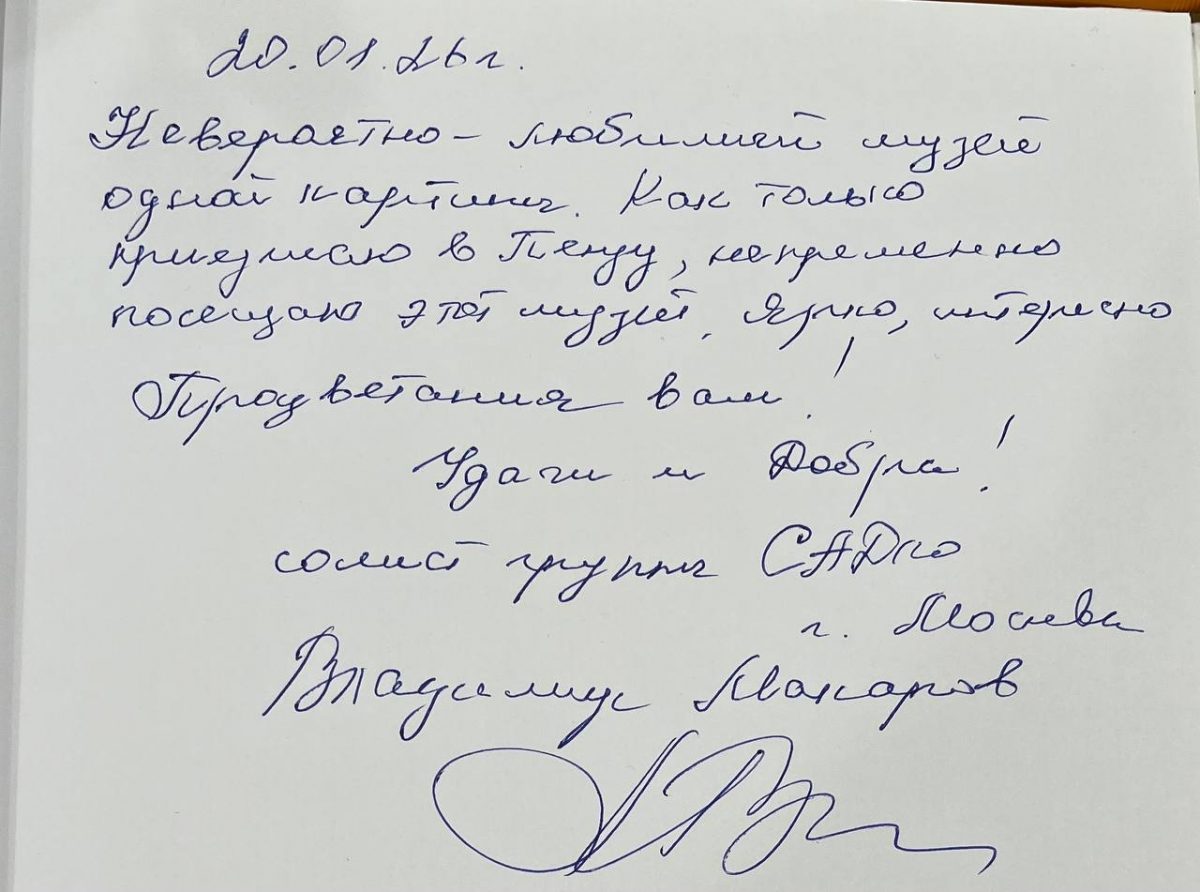 20.01.26 г.
Невероятно – любимый музей
одной картины. Как только
приезжаю в Пензу, непременно
посещаю этот музей. Ярко, интересно
Процветания вам!
Удачи и Добра!
солист группы САДко
г. Москва
Владимир Макаров